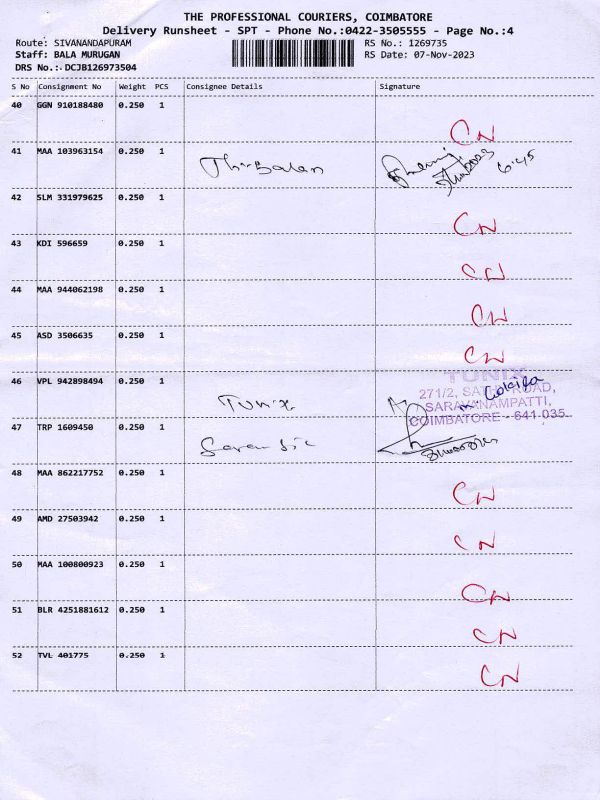 THE PROFESSIONAL COURIERS, COIMBATORE
Delivery Runsheet - SPT - Phone No.:0422-3505555 - Page No.:4
Route: SIVANANDAPURAM RS No.: 1269735
Staff: BALA MURUGAN RS Date: 07-Nov-2023
DRS No.:- DCJB126973504
S No Consignment No Weight PCS Consignee Details Signature
40 GGN 910188480 0.250 1
CN
41 MAA 103963154 0.250 1
6:45
42 SLM 331979625 0.250 1
CN
43 KDI 596659 0.250 1
CN
44 MAA 944062198 0.250 1
CN
45 ASD 3506635 0.250 1
CN
46 VPL 942898494 0.250 1
Tunix
TUNIX
271/2, ROAD,
SARAVANAMPATTI,
COIMBATORE - 641 035
47 TRP 1609450 0.250 1
48 MAA 862217752 0.250 1
CN
49 AMD 27503942 0.250 1
CN
50 MAA 100800923 0.250 1
CN
51 BLR 4251881612 0.250 1
CN
52 TVL 401775 0.250 1
CN